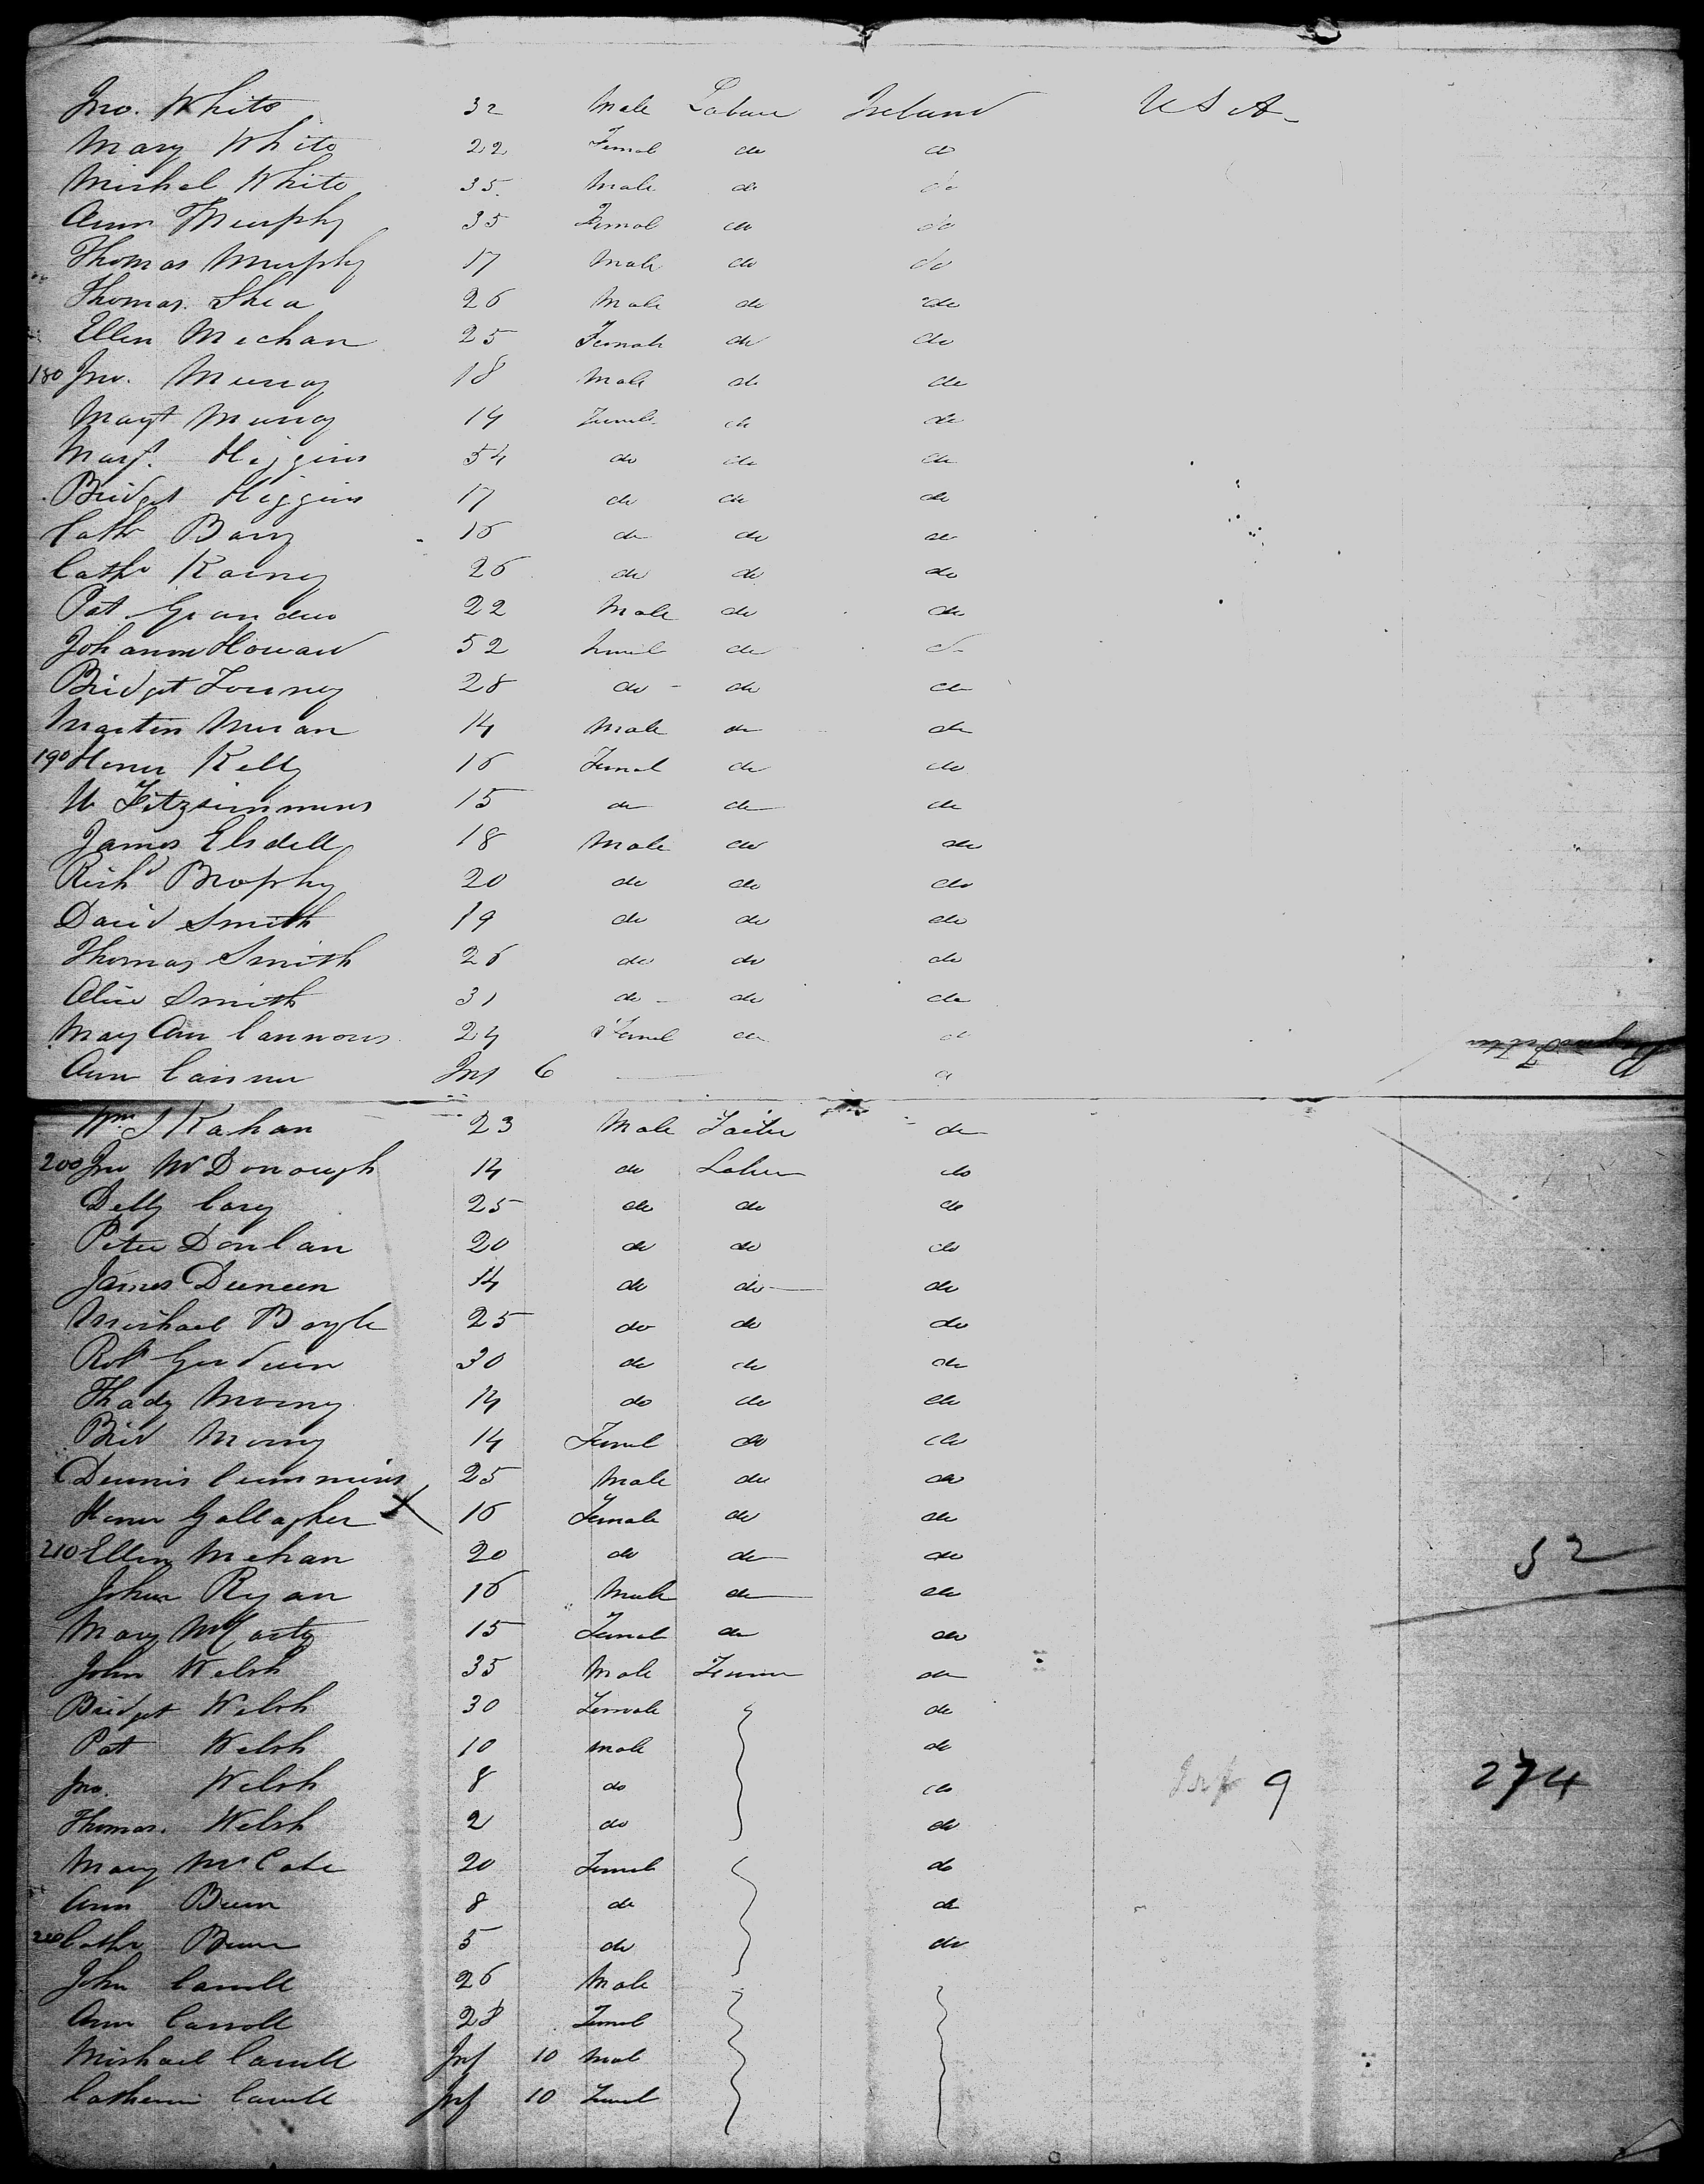 Jno. White 32 Male Labour Ireland U S A
Mary White 22 Femal do do
Michel White 35 Male do do
Ann Murphy 35 Femal do do
Thomas Murphy 17 Male do do
Thomas Shea 26 Male do do
Ellen Mechan 25 Female do do
180 Jno. Murray 18 Male do do
Magt Murray 14 Femal do do
Marg. Higgins 54 do do do
Bridget Higgins 17 do do do
Cath Barry 16 do do do
Cath 26 do do do
Pat 22 Male do do
Johanna Howard 52 Femal do do
Bridget 28 do do do
Martin Moran 14 Male do do
190 Honor Kelly 16 Femal do do
M Fitzsimmons 15 do do do
James Elsdell 18 Male do do
Richd Brophy 20 do do do
David Smith 19 do do do
Thomas Smith 26 do do do
Alice Smith 31 do do do
Mary Ann Cannons 24 Femal do do
Ann Inf 6 do
Wm J Kahan 23 Male do
200 Jno McDonough 14 do Laber do
Cary 25 do do do
Peter Donlan 20 do do do
James Duneen 14 do do do
Michael Boyle 25 do do do
Robt 30 do do do
Thady 14 do do do
Brid 14 Femal do do
Dennis Cummins 25 Male do do
Honor Gallagher X 16 Female do do
210 Ellen Mehan 20 do do do
52
John Ryan 16 Male do do
Mary McCarty 15 Femal do do
John Welsh 35 Male do
Bridget Welsh 30 Female do
Pat Welsh 10 Male do
Jno. Welsh 8 do do Inf 9 274
Thomas. Welsh 2 do do
Mary McCabe 20 Femal do
Ann 8 do do
220 Cath 5 do do
John Carroll 26 Male
Ann Carroll 28 Femal
Michael Carroll Inf 10 Mal
Catherin Carroll Inf 10 Femal